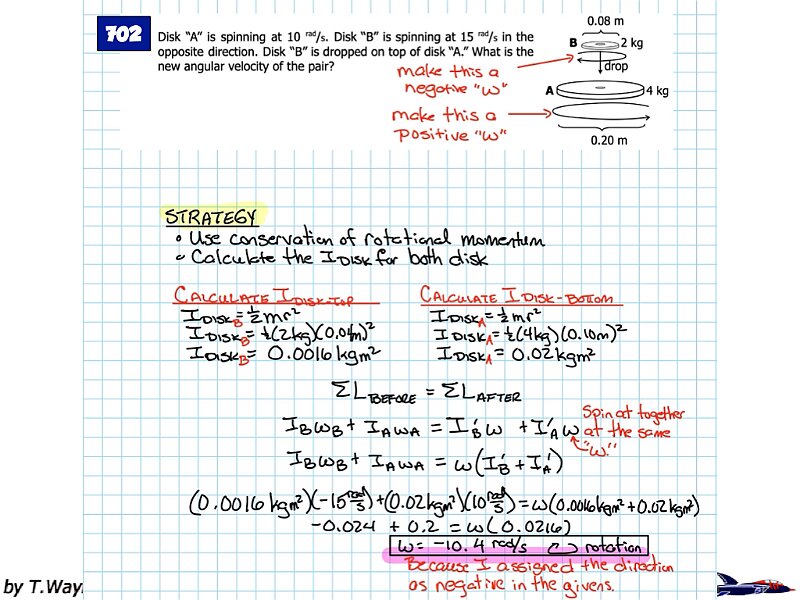 702
Disk “A” is spinning at 10 rad/s. Disk “B” is spinning at 15 rad/s in the
opposite direction. Disk “B” is dropped on top of disk “A.” What is the
new angular velocity of the pair?
0.08 m
B 2 kg
drop
A 4 kg
0.20 m
make this a
negative "ω"
make this a
positive "ω"
STRATEGY
• Use conservation of rotational momentum
• Calculate the I DISK for both disk
CALCULATE I DISK-TOP
I DISK B = ½mr²
I DISK B = ½(2kg)(0.04m)²
I DISK B = 0.0016 kgm²
CALCULATE I DISK-BOTTOM
I DISK A = ½mr²
I DISK A = ½(4kg)(0.10m)²
I DISK A = 0.02kgm²
ΣL BEFORE = ΣL AFTER
I_Bω_B + I_Aω_A = I'_Bω + I'_Aω
Spin at together
at the same
"ω."
I_Bω_B + I_Aω_A = ω(I'_B + I'_A)
(0.0016 kgm²)(-15 rad/s) + (0.02kgm²)(10 rad/s) = ω(0.0016kgm² + 0.02kgm²)
-0.024 + 0.2 = ω(0.0216)
ω = -10.4 rad/s rotation
Because I assigned the direction
as negative in the givens.
by T.Way